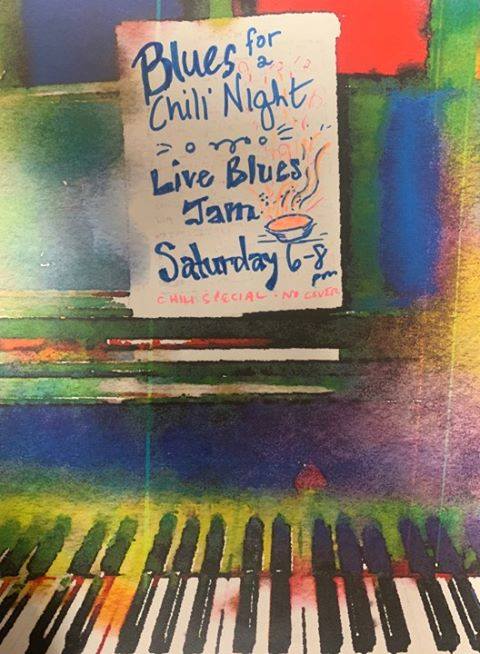 Blues for
a
Chili Night
Live Blues
Jam
Saturday 6-8
pm
CHILI SPECIAL • NO COVER